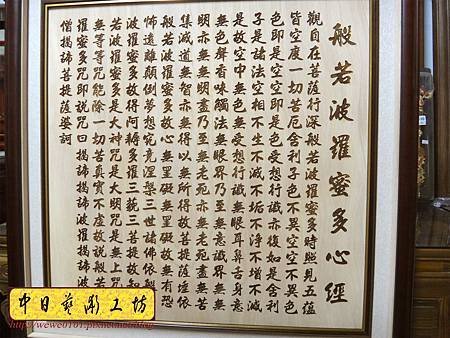 般若波羅蜜多心經
觀自在菩薩行深般若波羅蜜多時照見五蘊
皆空度一切苦厄舍利子色不異空空不異色
色即是空空即是色受想行識亦復如是舍利
子是諸法空相不生不滅不垢不淨不增不減
是故空中無色無受想行識無眼耳鼻舌身意
無色聲香味觸法無眼界乃至無意識界無無
明亦無無明盡乃至無老死亦無老死盡無苦
集滅道無智亦無得以無所得故菩提薩埵依
般若波羅蜜多故心無罣礙無罣礙故無有恐
怖遠離顛倒夢想究竟涅槃三世諸佛依般
羅蜜多故得阿耨多羅三藐三菩提故知
若波羅蜜多是大神咒是大明咒是無上咒
無等等咒能除一切苦真實不虛故說般若
羅蜜多咒即說咒曰揭諦揭諦波羅揭諦波
僧揭諦菩提薩婆訶
中日藝彫工坊
http://wewe0101.pixnet.net/blog